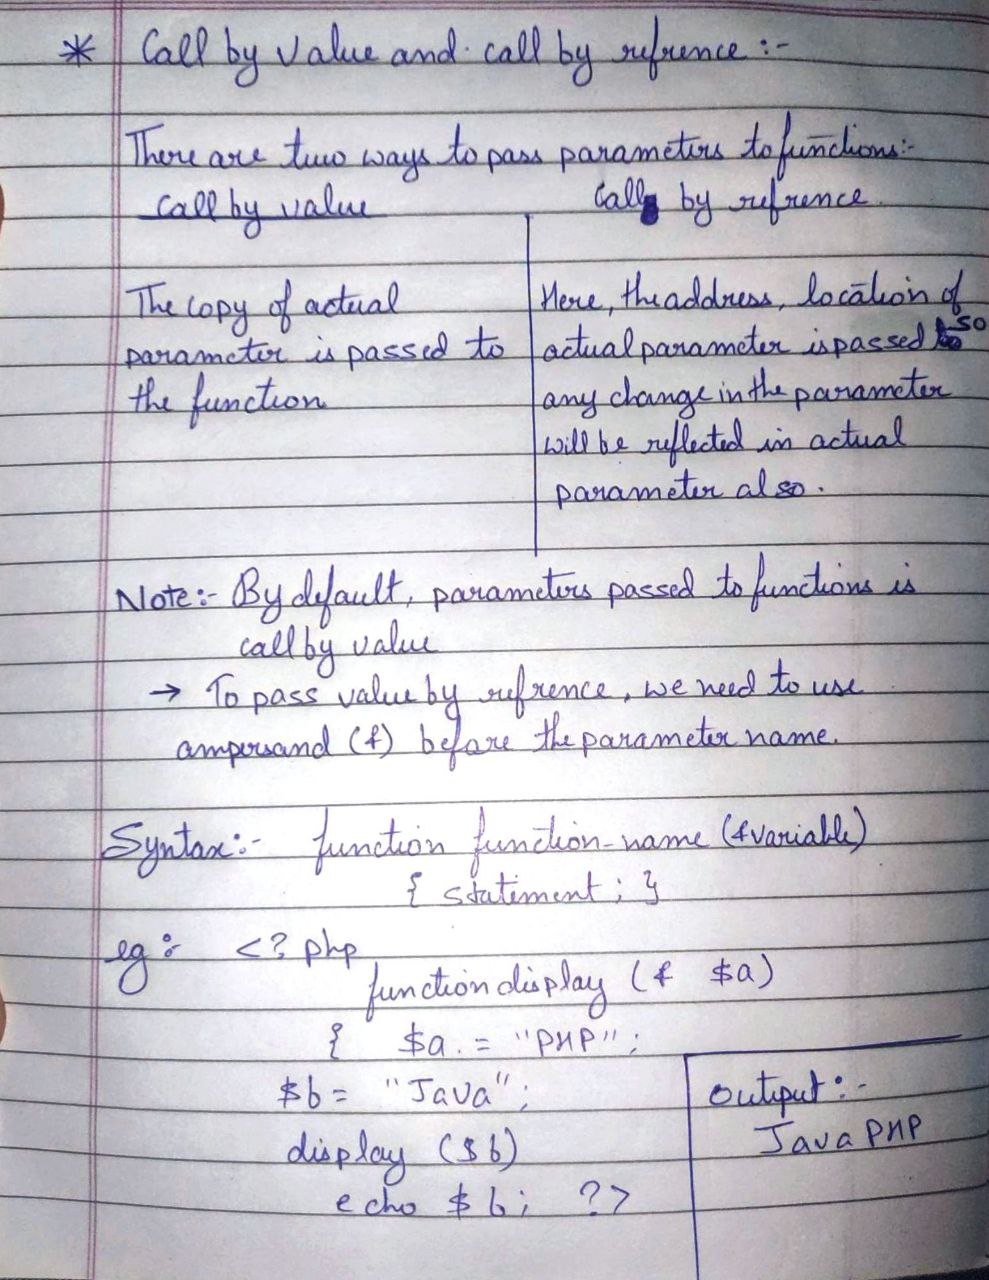 * Call by value and call by refrence :-
There are two ways to pass parameters to functions:-
Call by value
Call by refrence.
The copy of actual
parameter is passed to
the function
Here, the address, location of
actual parameter is passed so
any change in the parameter
will be reflected in actual
parameter also.
Note:- By default, parameters passed to functions is
call by value
→ To pass value by refrence, we need to use
ampersand (&) before the parameter name.
Syntax:- function function-name (&variable)
{ statement ; }
eg:- <? php
function display (& $a)
{ $a . = "PHP" ;
$b = "Java" ;
display ($b)
echo $b ; ?>
Output :-
Java PHP